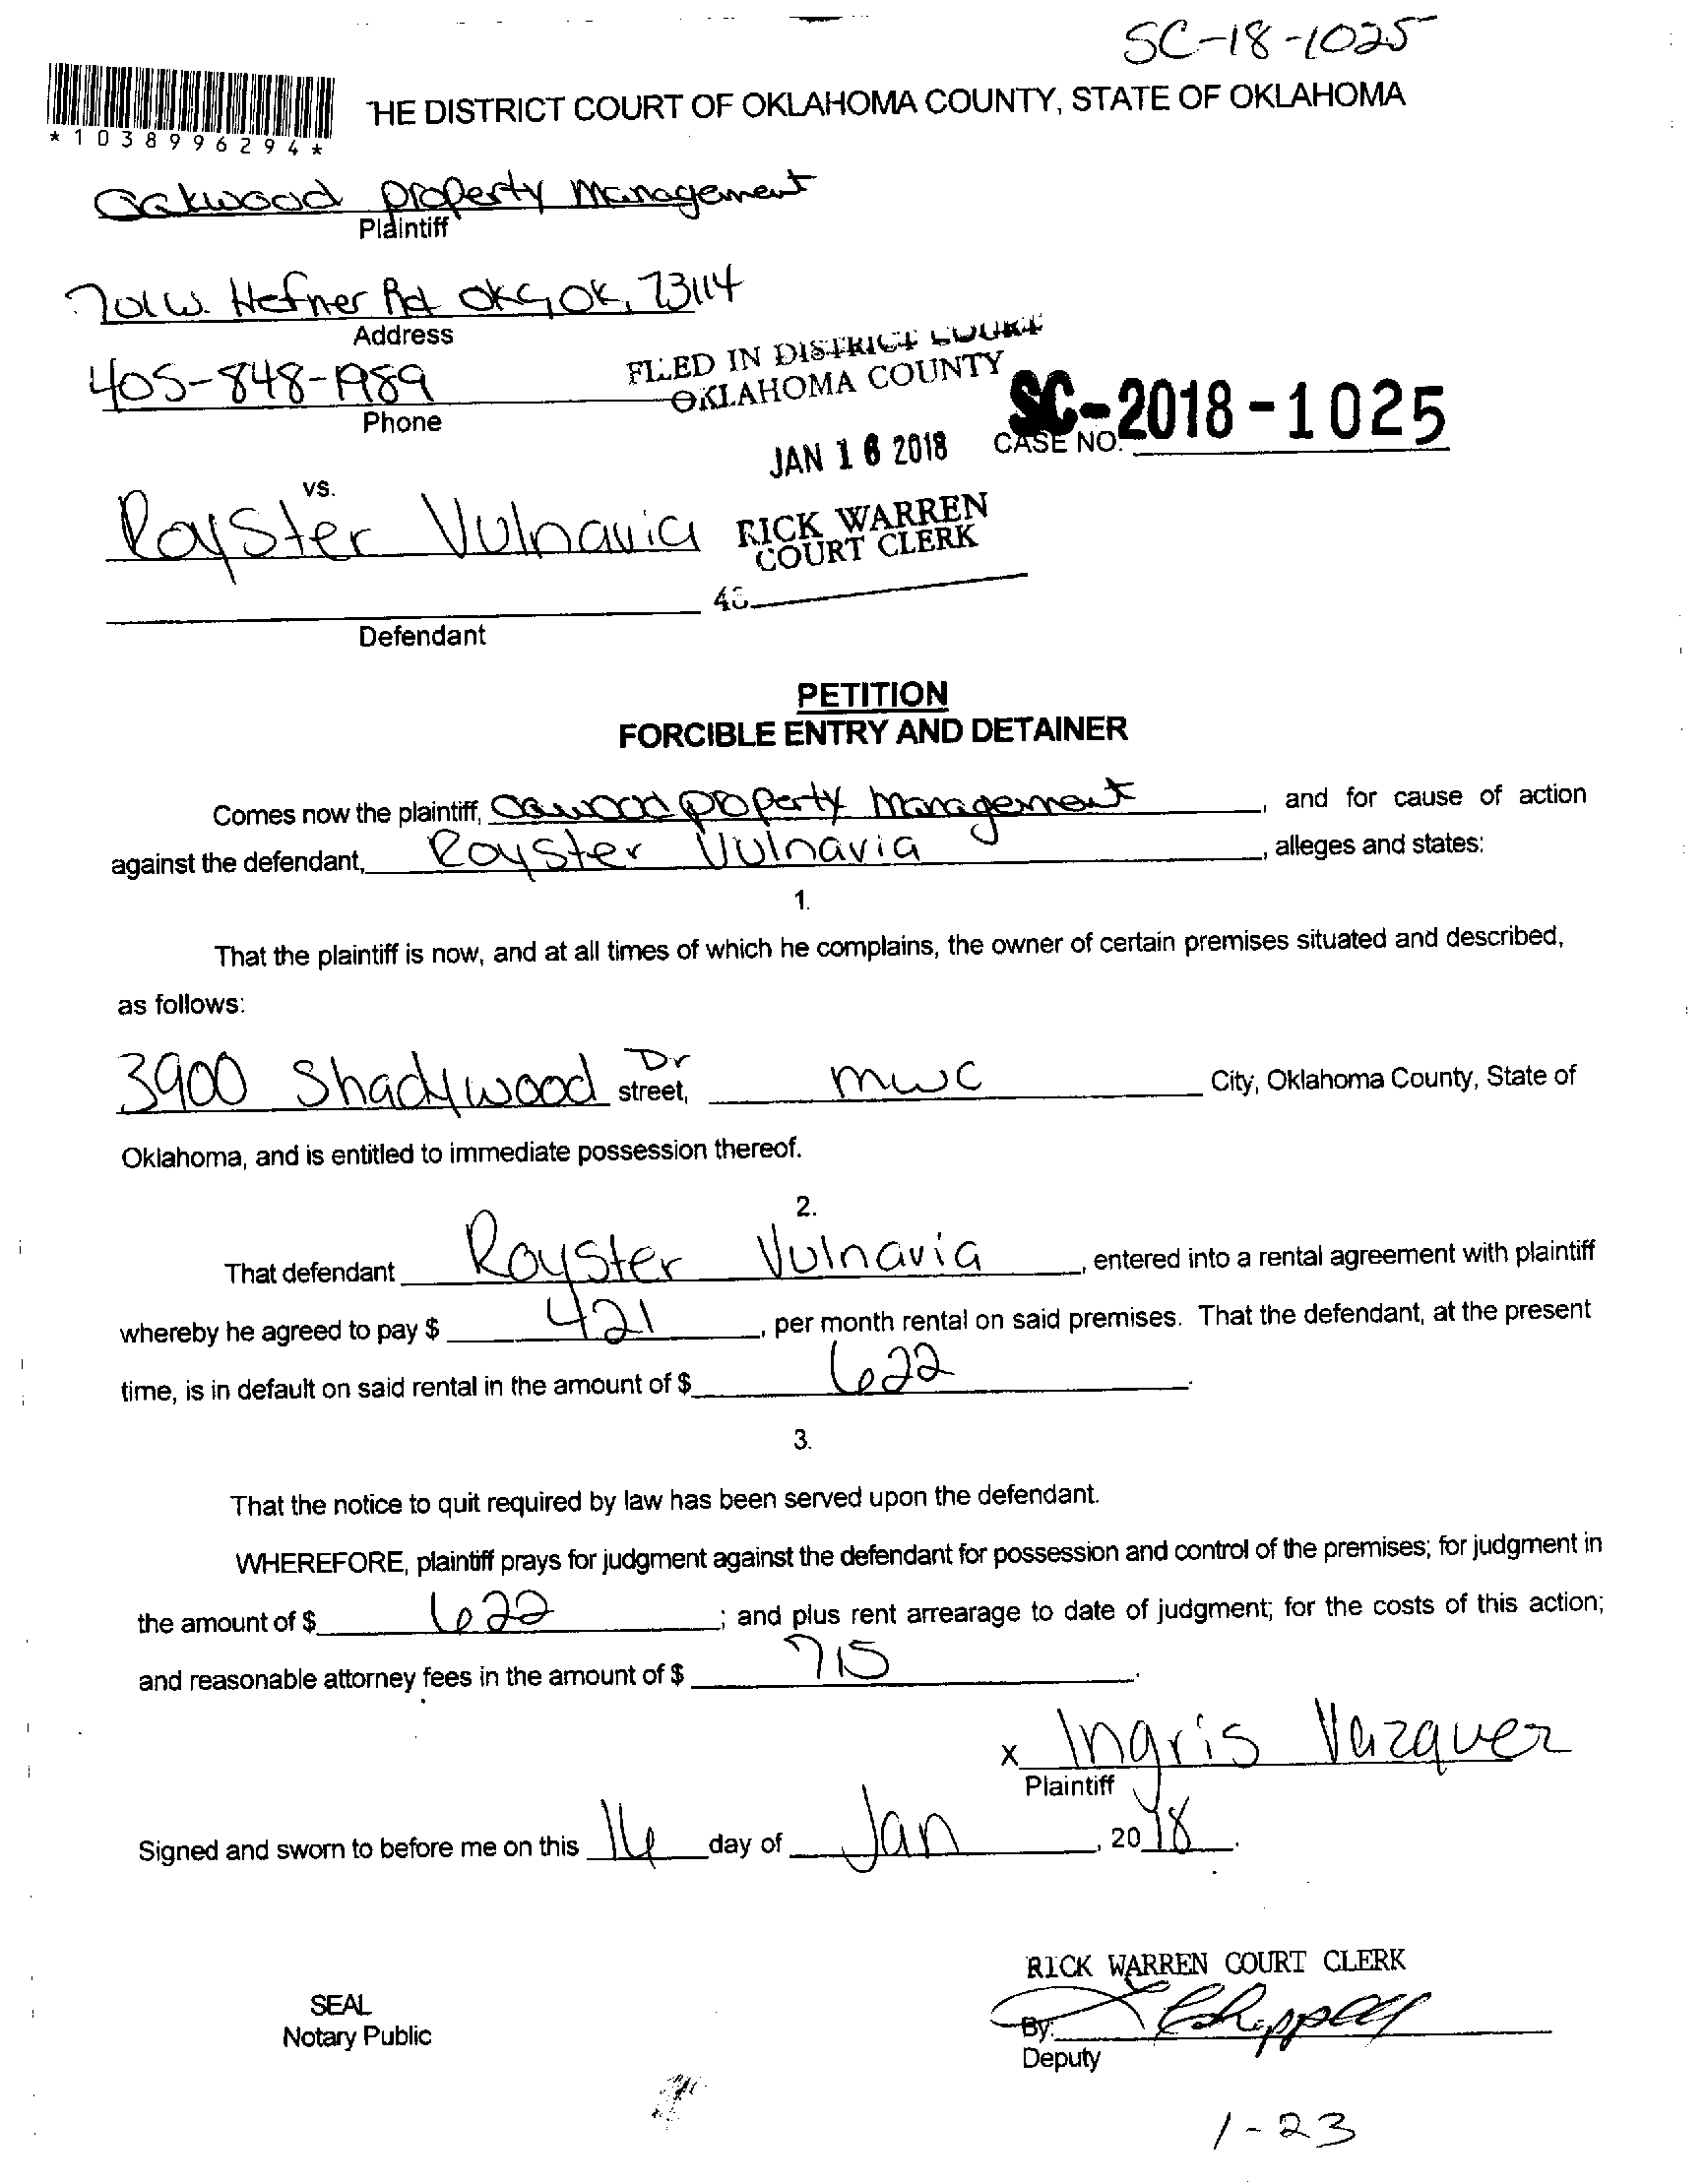 SC-18-1025
THE DISTRICT COURT OF OKLAHOMA COUNTY, STATE OF OKLAHOMA
*1038996294*
Oakwood Property Management
Plaintiff
701 W. Hefner Rd OKC, OK, 73114
Address
405-848-1989
Phone
FILED IN DISTRICT COURT
OKLAHOMA COUNTY
JAN 16 2018
CASE NO. SC-2018-1025
vs.
Royster Vulnavia
RICK WARREN
COURT CLERK
Defendant
PETITION
FORCIBLE ENTRY AND DETAINER
Comes now the plaintiff, Oawood property Management, and for cause of action
against the defendant, Royster Vulnavia, alleges and states:
1.
That the plaintiff is now, and at all times of which he complains, the owner of certain premises situated and described,
as follows:
3900 Shadywood Dr street, MWC City, Oklahoma County, State of
Oklahoma, and is entitled to immediate possession thereof.
2.
That defendant Royster Vulnavia, entered into a rental agreement with plaintiff
whereby he agreed to pay $ 421, per month rental on said premises. That the defendant, at the present
time, is in default on said rental in the amount of $ 622.
3.
That the notice to quit required by law has been served upon the defendant.
WHEREFORE, plaintiff prays for judgment against the defendant for possession and control of the premises; for judgment in
the amount of $ 622; and plus rent arrearage to date of judgment; for the costs of this action;
and reasonable attorney fees in the amount of $ 715.
x Ingris Vazquez
Plaintiff
Signed and sworn to before me on this 16 day of Jan, 2018.
RICK WARREN COURT CLERK
SEAL
Notary Public
By:
Deputy
1-23